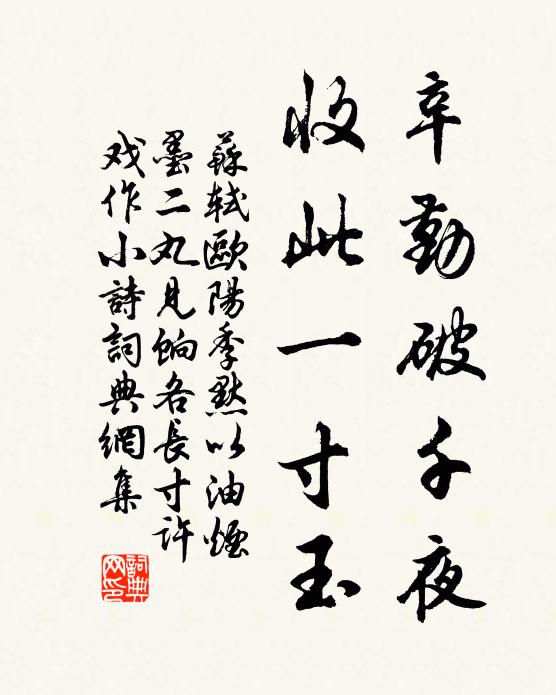 辛勤破千夜
收此一寸玉
蘇軾歐陽季默以油煙
墨二丸見餉各長寸許
戏作小詩詞典網集
詞典网印